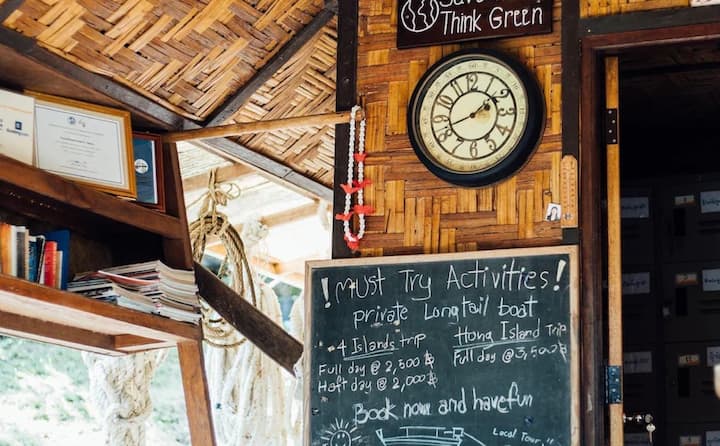 Think Green
12
1
2
3
4
5
6
7
8
9
10
11
! Must Try Activities !
private Longtail boat
4 Islands trip
Full day @ 2,500 ฿
Haft day @ 2,000 ฿
Hong Island Trip
Full day @ 3,500 ฿
Book now and have fun
Local Tour